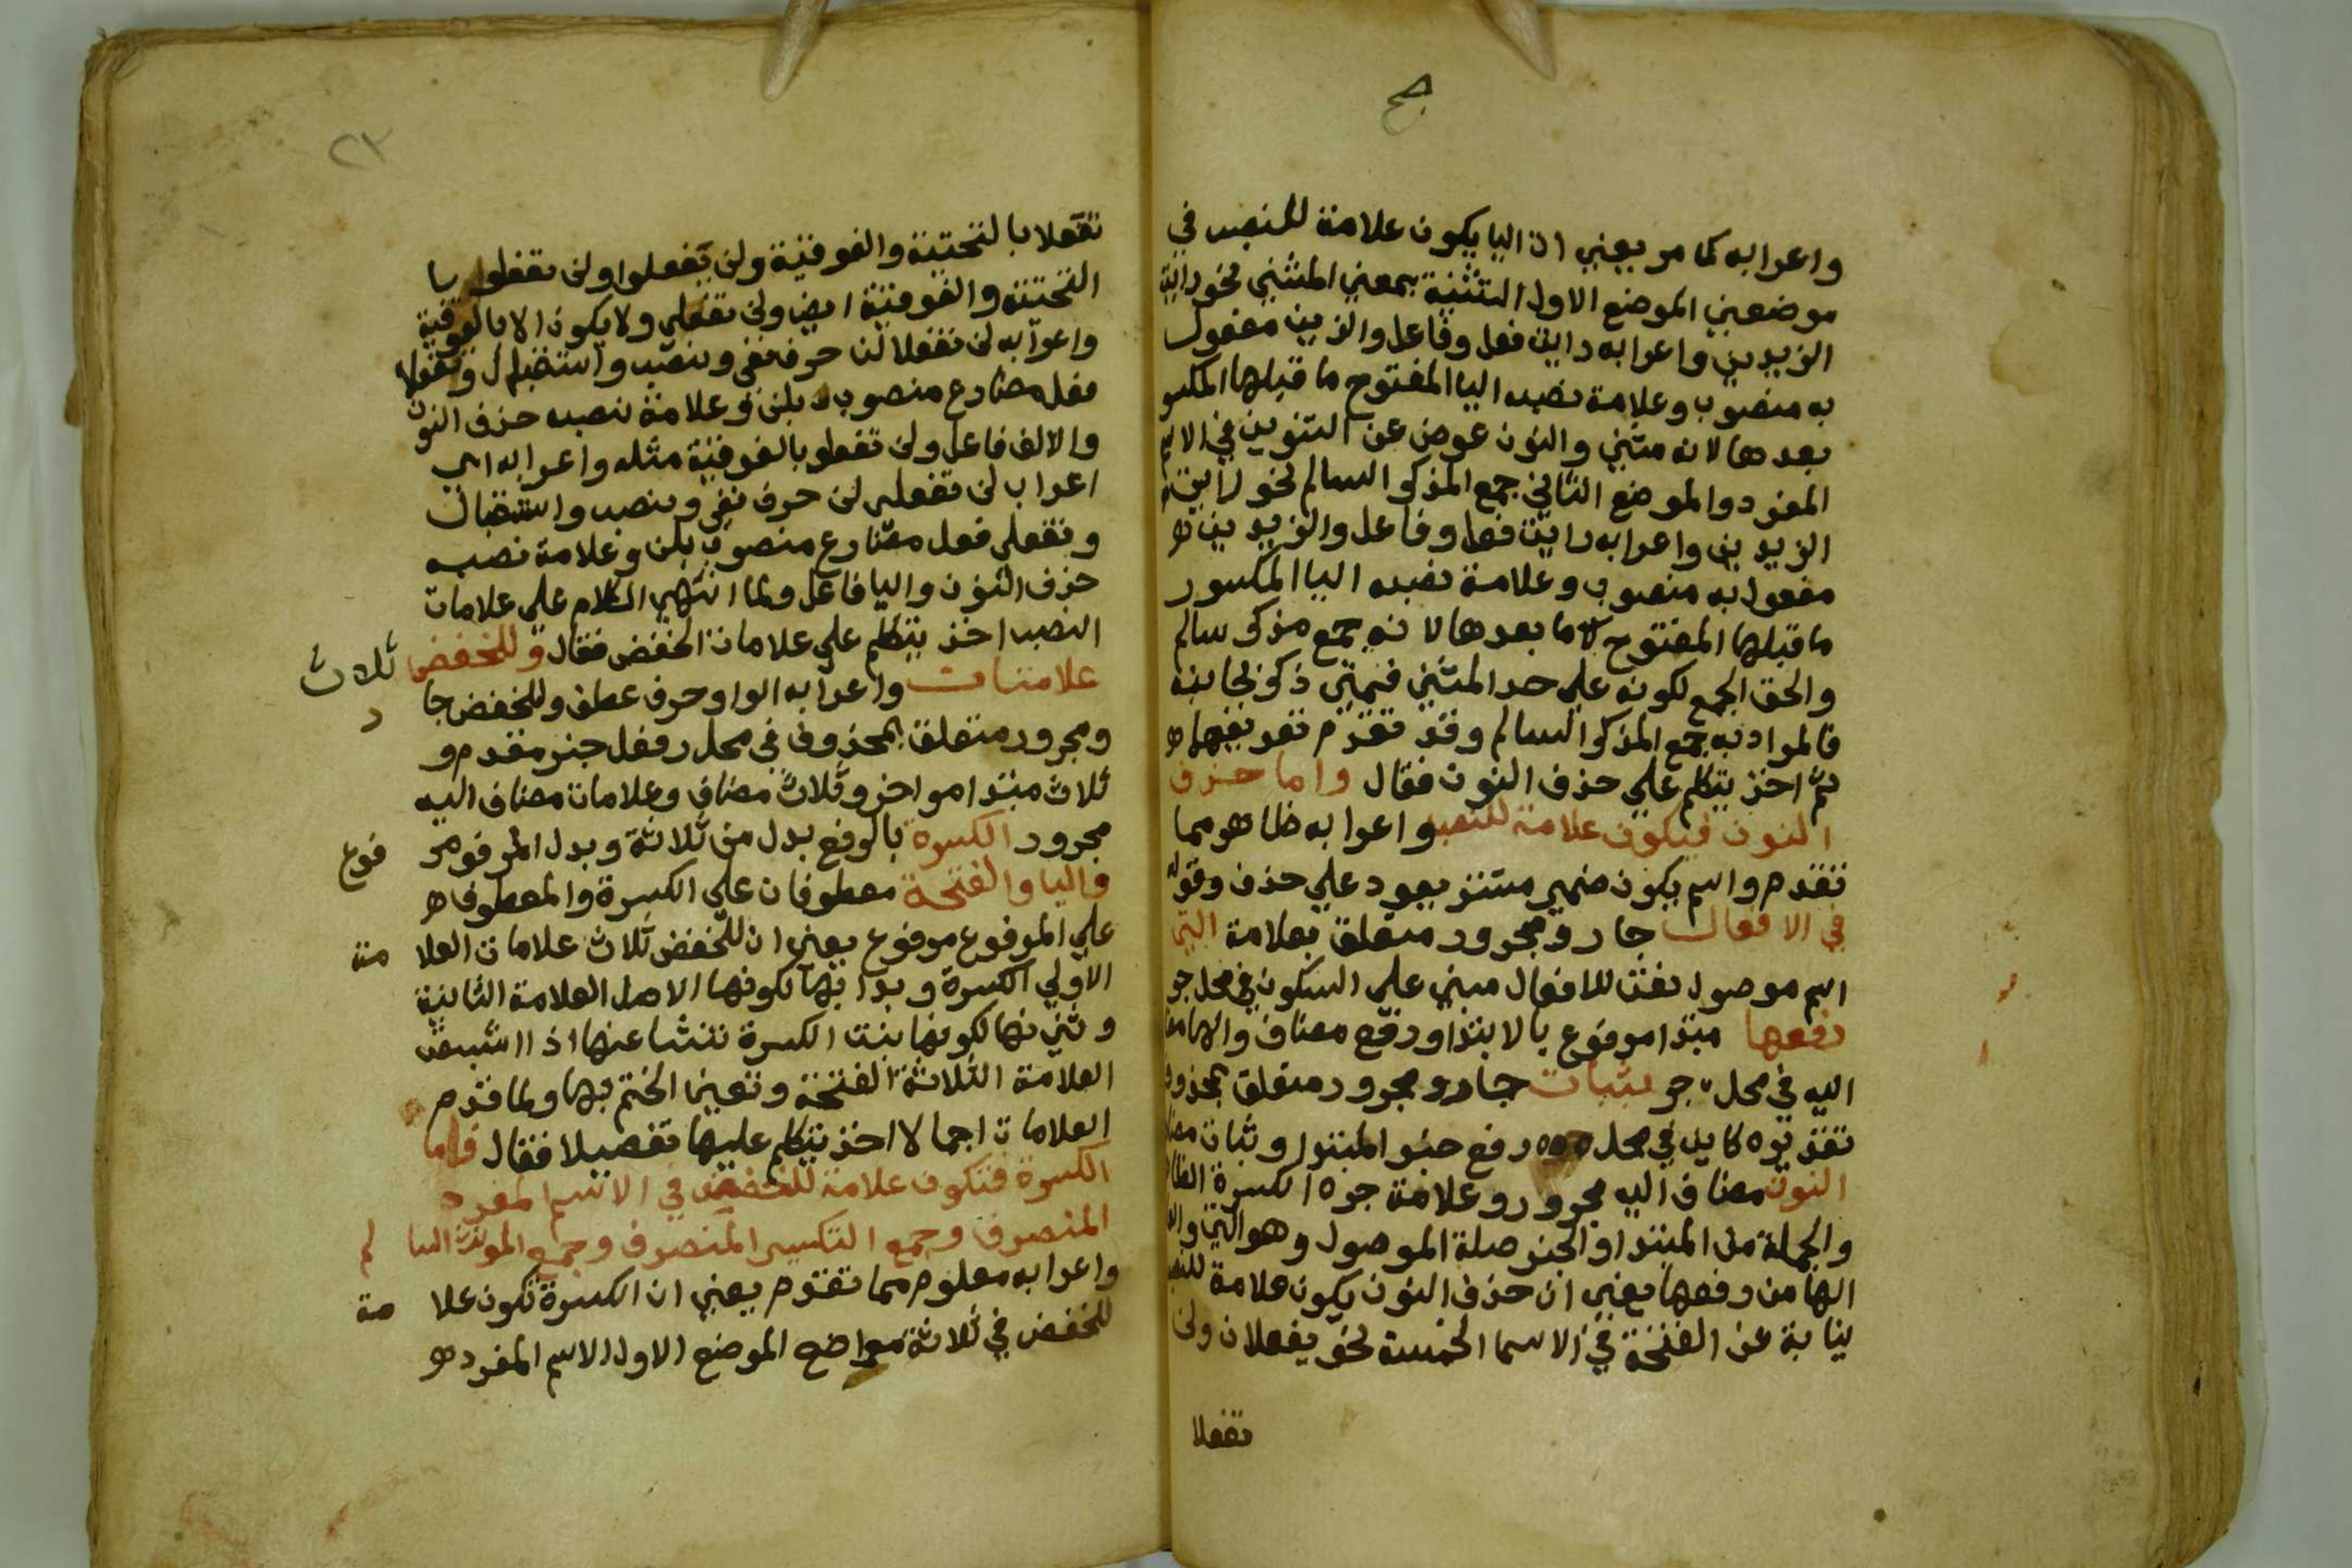 صح
واعرابه كما مر يعني ان اليا يكون علامة للنصب في
موضعين الموضع الاول التثنية بمعني المثني نحو رايت
الزيدين واعرابه رايت فعل وفاعل والزيدين مفعول
به منصوب وعلامة نصبه اليا المفتوح ما قبلها المكسو
بعدها لانه مثني والنون عوض عن التنوين في الاسم
المفرد والموضع الثاني جمع المذكر السالم نحو رايت
الزيدين واعرابه رايت فعل وفاعل والزيدين
مفعول به منصوب وعلامة نصبه اليا المكسور
ما قبلها المفتوح ما بعدها لانه جمع مذكر سالم
والحق الجمع لكونه علي حد المثني فمتي ذكر بجانبه
فالمراد به جمع المذكر السالم وقد تقدم تعريفهما
ثم اخذ يتكلم علي حذف النون فقال واما حذف
النون فيكون علامة للنصب واعرابه ظاهر مما
تقدم واسم يكون ضمير مستتر يعود علي حذف وقوله
في الافعال جار ومجرور متعلق بعلامة التي
اسم موصول نعت للافعال مبني علي السكون في محل جر
رفعها مبتدا مرفوع بالابتدا ورفع مضاف والها مضا
اليه في محل جر بثبات جار ومجرور متعلق بمحذوف
تقديره كاين في محل رفع خبر المبتدا وثبات مضا
النون مضاف اليه مجرور وعلامة جره الكسرة الظا
والجملة من المبتدا والخبر صلة الموصول وهو التي والعا
الها من رفعها يعني ان حذف النون يكون علامة للنصب
نيابة عن الفتحة في الاسما الخمسة نحو يفعلان ولن
تفعلا
٢٣
تفعلا بالتحتية والفوقية ولن يفعلوا ولن تفعلوا با
التحتية والفوقية ايض ولن تفعلي ولا يكون الا بالفوقية
واعرابه لن تفعلا لن حرف نفي ونصب واستقبال وتفعلا
فعل مضارع منصوب بلن وعلامة نصبه حذف النون
والالف فاعل ولن تفعلو بالفوقية مثله واعرابه اي
اعراب لن تفعلي لن حرف نفي ونصب واستقبال
وتفعلي فعل مضارع منصوب بلن وعلامة نصبه
حذف النون واليا فاعل ولما انتهي الكلام علي علامات
النصب اخذ يتكلم علي علامات الخفض فقال وللخفض ثلاث
علامات واعرابه الواو حرف عطف وللخفض جا ر
ومجرور متعلق بمحذوف في محل رفعل خبر مقدم و
ثلاث مبتدا مواخر وثلاث مضاف وعلامات مضاف اليه
مجرور الكسرة بالرفع بدل من ثلاثة وبدل المرفو مر فوع
واليا والفتحة معطوفان علي الكسرة والمعطوف
علي المرفوع مرفوع يعني ان للخفض ثلاث علامات العلا مة
الاولي الكسرة وبدا بها لكونها الاصل العلامة الثانية
وثني بها لكونها بنت الكسرة تنشا عنها اذا اشبعت
العلامة الثلاثة الفتحة وتعين الختم بها ولما قدم
العلامات اجمالا اخذ يتكلم عليها تفصيلا فقال فاما
الكسرة فتكون علامة للخفض في الاسم المفرد
المنصرف وجمع التكسير المنصرف وجمع المونث السا لم
واعرابه معلوم مما تقدم يعني ان الكسرة تكون علا مة
للخفض في ثلاثة مواضع الموضع الاول الاسم المفرد